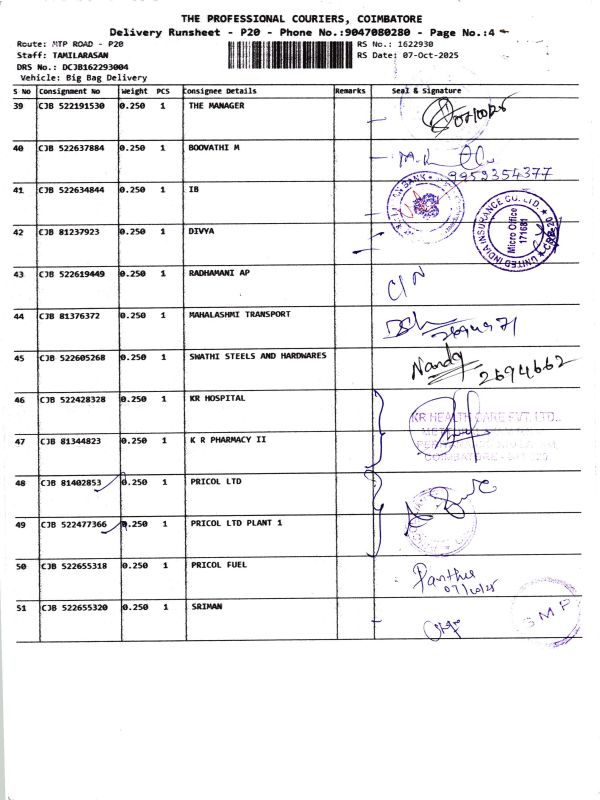 THE PROFESSIONAL COURIERS, COIMBATORE
Delivery Runsheet - P20 - Phone No.:9047080280 - Page No.:4
Route: MTP ROAD - P20
RS No.: 1622930
Staff: TAMILARASAN
RS Date: 07-Oct-2025
DRS No.: DCJB162293004
Vehicle: Big Bag Delivery
S No Consignment No Weight PCS Consignee Details Remarks Seal & Signature
39 CJB 522191530 0.250 1 THE MANAGER
40 CJB 522637884 0.250 1 BOOVATHI M
9952354377
41 CJB 522634844 0.250 1 IB
UNITED INDIA INSURANCE CO. LTD.
Micro Office
171681
42 CJB 81237923 0.250 1 DIVYA
43 CJB 522619449 0.250 1 RADHAMANI AP
C/N
44 CJB 81376372 0.250 1 MAHALASHMI TRANSPORT
45 CJB 522605268 0.250 1 SWATHI STEELS AND HARDWARES
Nandy
2694662
46 CJB 522428328 0.250 1 KR HOSPITAL
KR HEALTH CARE PVT. LTD.,
47 CJB 81344823 0.250 1 K R PHARMACY II
48 CJB 81402853 0.250 1 PRICOL LTD
49 CJB 522477366 0.250 1 PRICOL LTD PLANT 1
50 CJB 522655318 0.250 1 PRICOL FUEL
07/10/25
51 CJB 522655320 0.250 1 SRIMAN
SMP